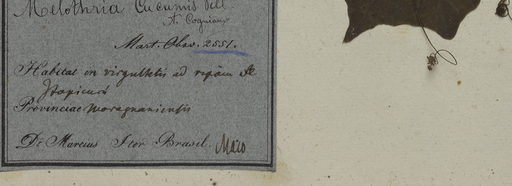 Melothria Cucumis Vell
A. Cogniaux
Mart. Obsv. 2551.
Habitat in virgultetis ad ripam fl.
Itapicurú
Provinciae Maragnaniensis
Dr Martius Iter Brasil. Majo